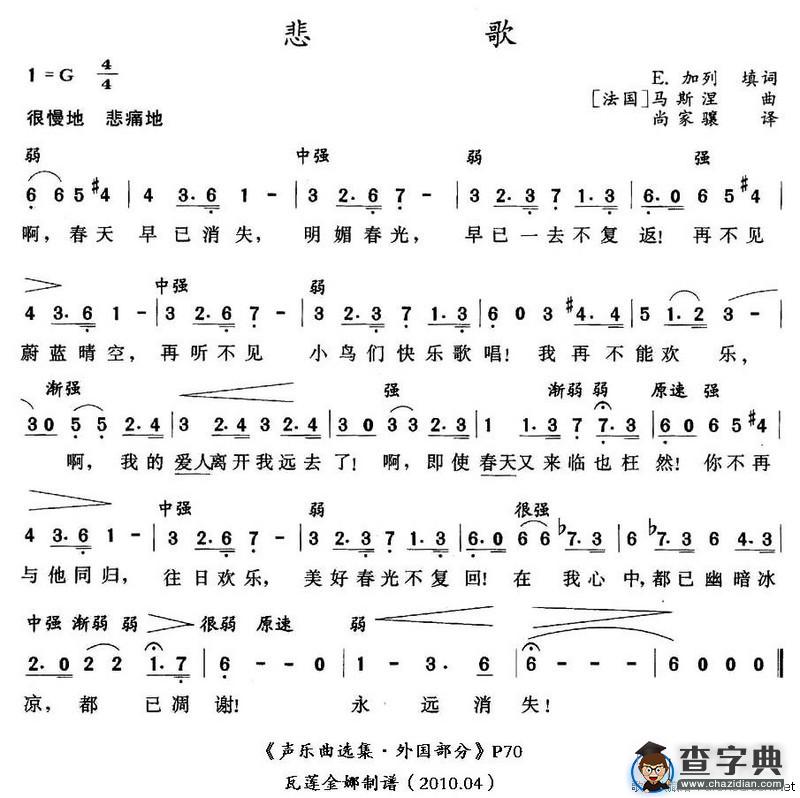 悲 歌
1=G 4/4
E. 加列 填词
[法国]马斯涅 曲
很慢地 悲痛地
尚家骧 译
弱 中强 弱 强
6 6 5 #4 | 4 3·6 1 - | 3 2·6 7 - | 3 2·3 7 1·3 | 6·0 6 5 #4 |
啊, 春天 早已消失, 明媚春光, 早已一去不复返! 再不见
中强 弱
4 3·6 1 - | 3 2·6 7 - | 3 2·3 7 1·3 | 6 0 3 #4·4 | 5 1·2 3 - |
蔚蓝晴空, 再听不见 小鸟们快乐歌唱! 我再不能欢乐,
渐强 强 渐弱 弱 原速 强
3 0 5 5 2·4 | 3 2·4 3 2·4 | 3 0 3 3 2·4 | 1 1·3 7 7·3 | 6·0 6 5 #4 |
啊, 我的爱人离开我远去了! 啊, 即使春天又来临也枉然! 你不再
中强 弱 很强
4 3·6 1 - | 3 2·6 7 - | 3 2·3 7 1·3 | 6·0 6 6 b7·3 | 6 b7·3 6 4·3 |
与他同归, 往日欢乐, 美好春光不复回! 在我心中, 都已幽暗冰
中强 渐弱 弱 很弱 原速 弱
2·0 2 2 1·7 | 6 - - 0 | 1 - 3· 6 | 6 - - - | 6 0 0 0 ‖
凉, 都已凋谢! 永远消失!
《声乐曲选集·外国部分》P70
瓦莲金娜制谱(2010.04)
查字典
www.chazidian.com